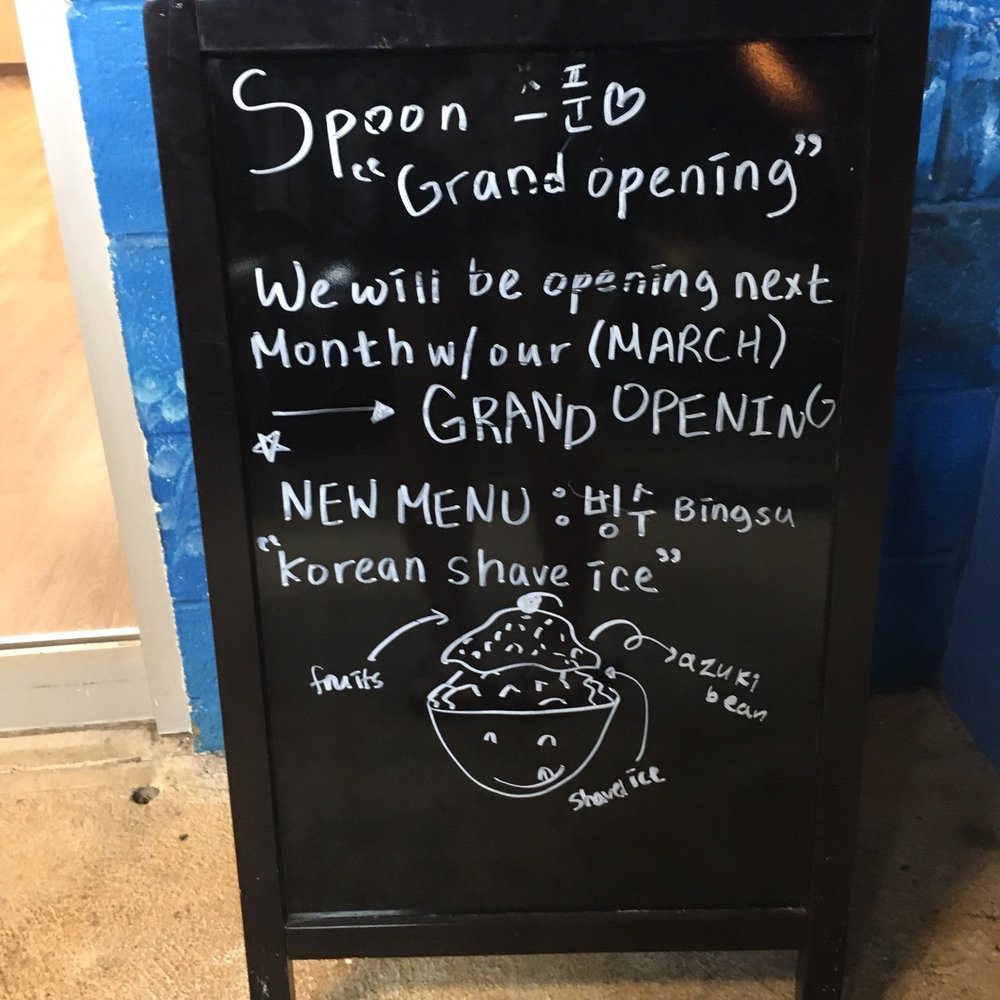 Spoon 스푼♡
"Grand opening"
We will be opening next
Month w/our (MARCH)
→ GRAND OPENING
☆
NEW MENU : 빙수 Bingsu
"Korean shave ice"
fruits
azuki
bean
shaved ice